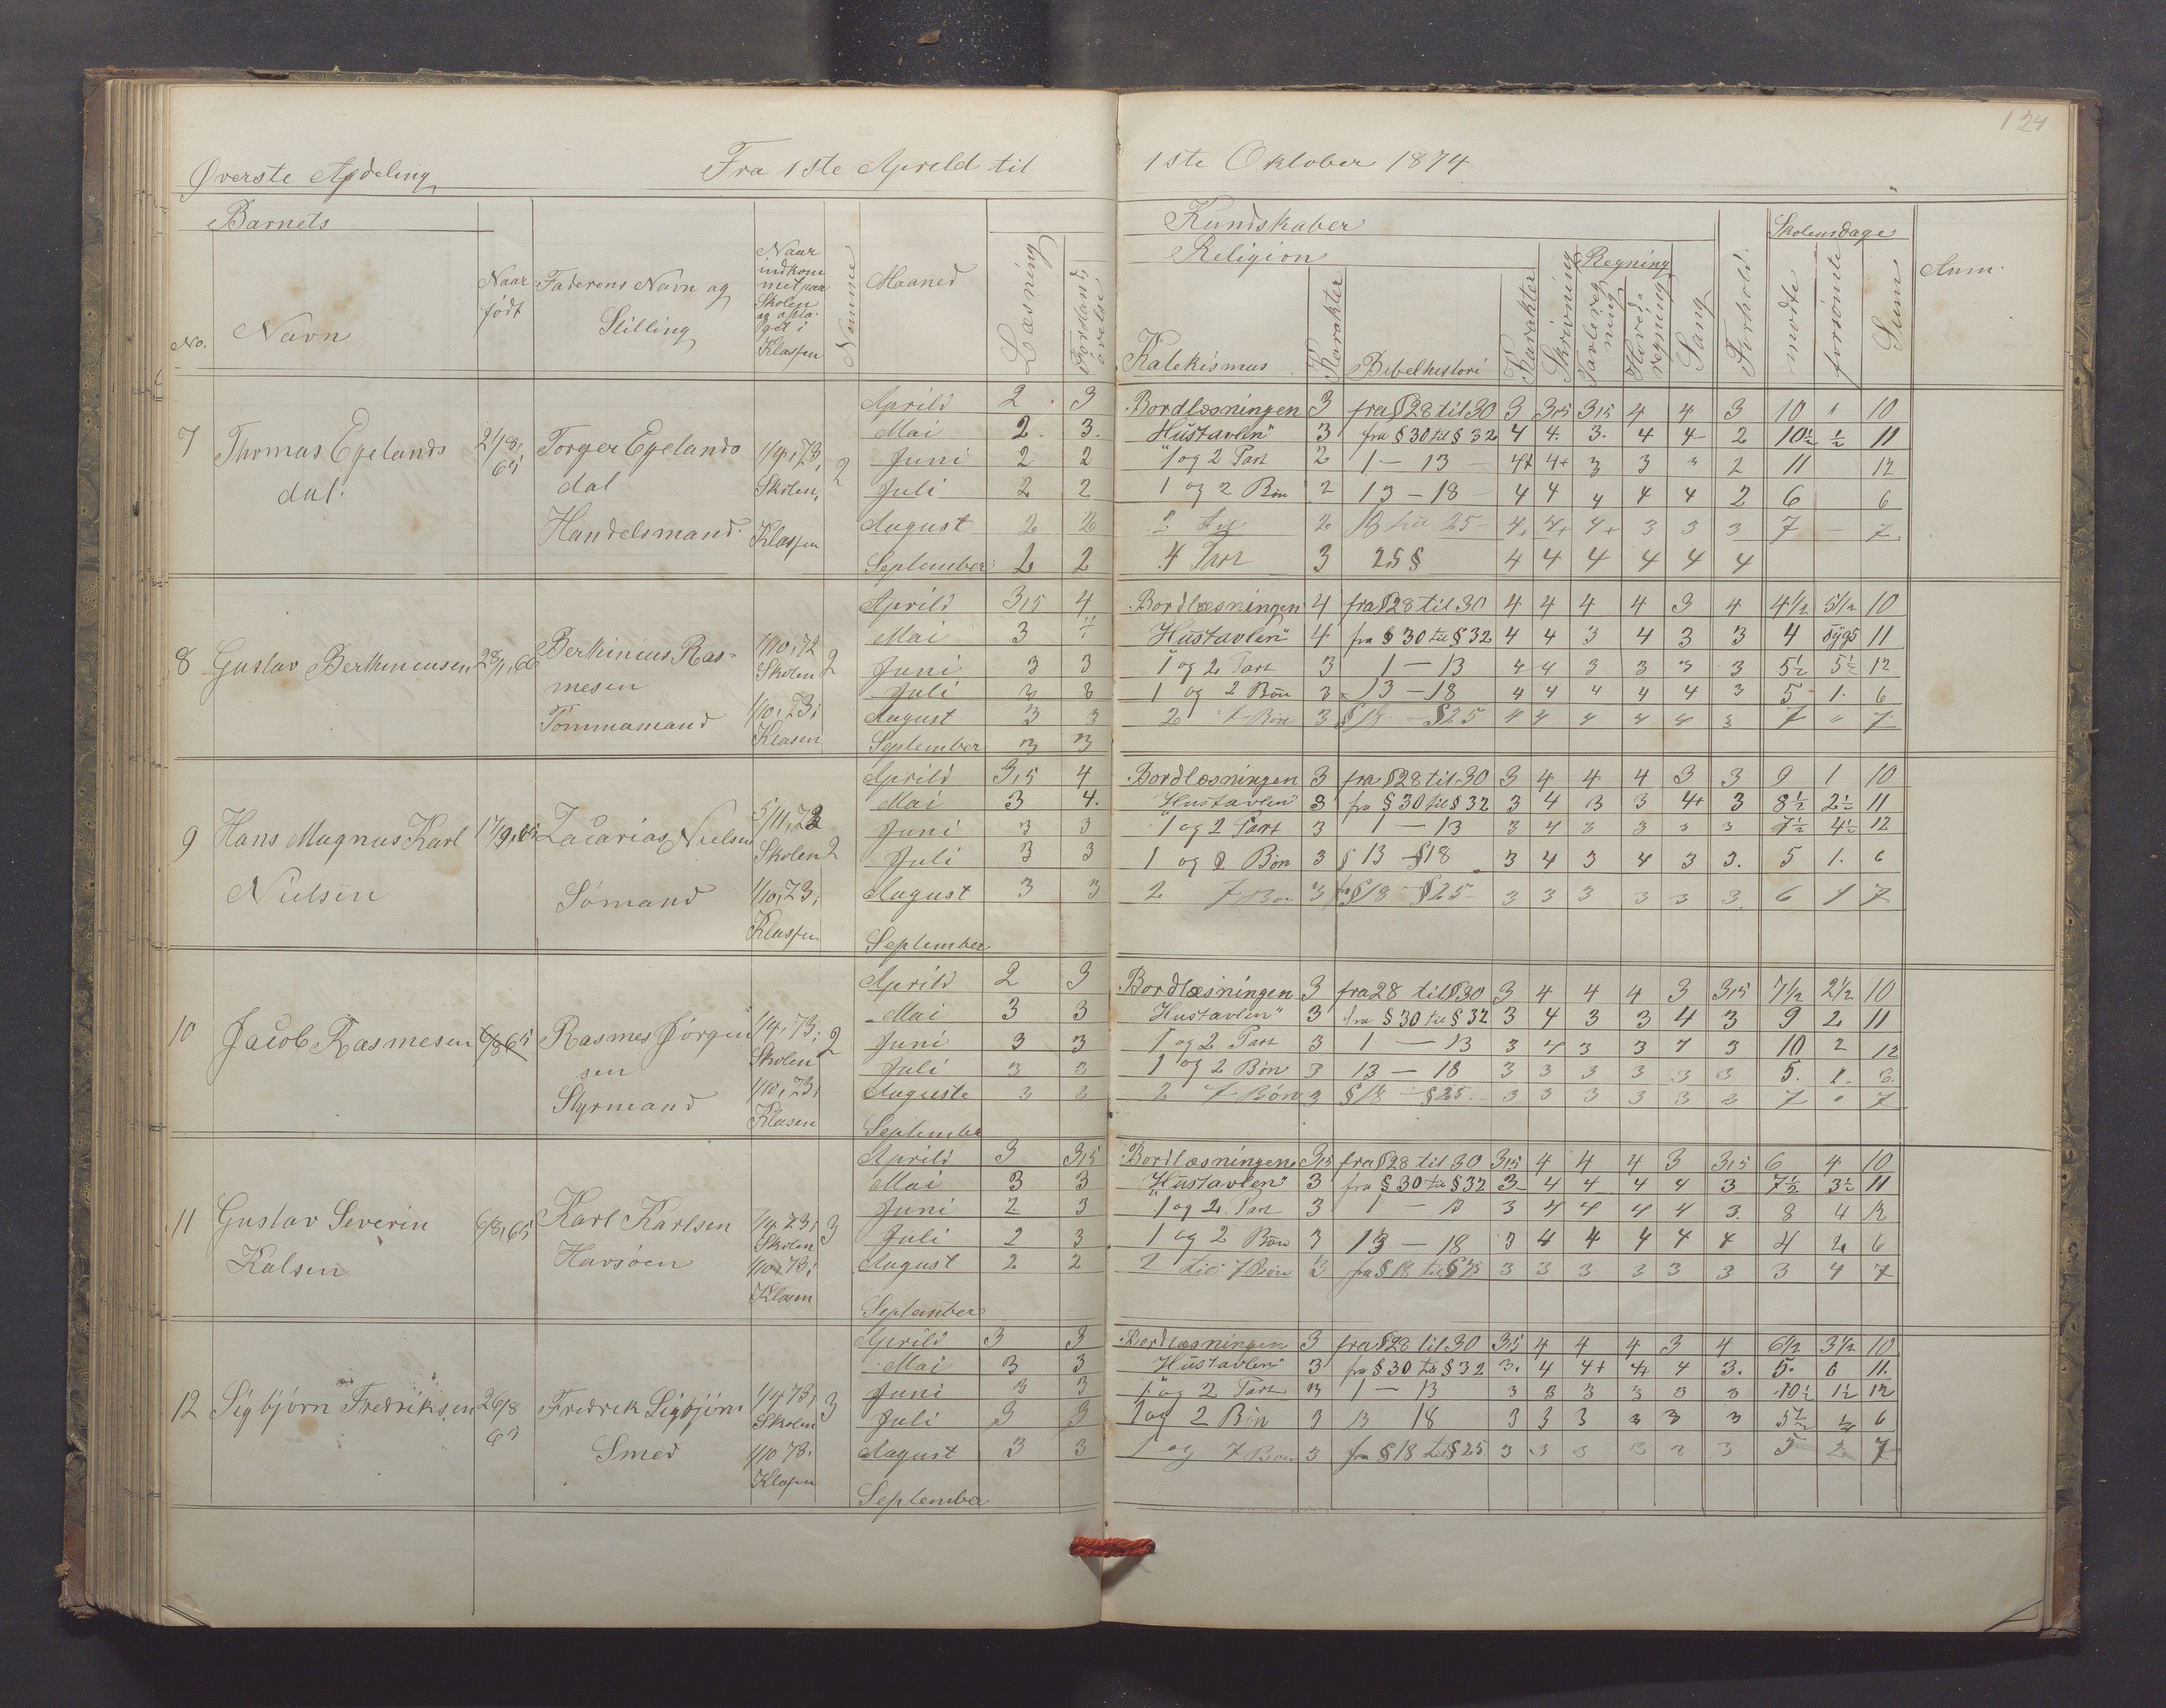 124
Øverste Afdeling Fra 1ste Apreld til 1ste Oktober 1874
Barnets Kundskaber Skolensdage
Religion Regning Anm.
No. Navn
Naar født
Faderens Navn og Stilling
Naar indkommet paa Skolen og optaget i Klassen
Nemme
Maaned
Læsning
Forstandsøvelse
Katekismus
Karakter
Bibelhistori
Karakter
Skrivning
Tavleregning
Hovedregning
Sang
Forhold.
mødte
forsømte
Sum
7 Thomas Egelandsdal. 21/8, 65 Torger Egelandsdal Handelsmand. 1/4, 73, Skolen, Klassen 2
Aprild 2 3 Bordlæsningen 3 fra § 28 til 30 3 3,5 3,5 4 4 3 10 " 10
Mai 2. 3. "Hustavlen" 3 fra § 30 til § 32 4 4. 3. 4 4- 2 10½ ½ 11
Juni 2 2 1 og 2 Part 2 1 — 13 4+ 4+ 3 3 3 2 11 12
Juli 2 2 1 og 2 Bøn 2 13 — 18 4 4 4 4 4 2 6 6
August 2 2 2 2 18 til 25 4+ 4+ 4+ 3 3 3 7 — 7
September 2 2 4 Part 3 25 § 4 4 4 4 4 4
8 Gustav Berthiniusen 28/1, 66 Berthinius Rasmesen Tømmamand 1/10, 72 Skolen 1/10, 73, Klasen 2
Aprild 3,5 4 Bordlæsningen 4 fra § 28 til 30 4 4 4 4 3 4 4½ 5½ 10
Mai 3 4 Hustavlen" 4 fra § 30 til § 32 4 4 3 4 3 3 4 syg 5 11
Juni 3 3 1 og 2 Part 3 1 — 13 4 4 3 3 3 3 5½ 5½ 12
Juli 3 3 1 og 2 Bøn 3 13 — 18 4 4 4 4 4 3 5 1. 6
August 3 3 2 7 Bøn 3 § 18 — § 25 4 4 4 4 4 3 7 " 7
September 3 3
9 Hans Magnus Karl Nielsen 17/9, 65 Zacarias Nielsen Sømand 5/11, 72 Skolen 1/10, 73, Klassen 2
Aprild 3,5 4 Bordlæsningen 3 fra § 28 til 30 3 4 4 4 3 3 9 1 10
Mai 3 4. "Hustavlen" 3 fra § 30 til § 32 3 4 3 3 4+ 3 8½ 2½ 11
Juni 3 3 1 og 2 Part 3 1 — 13 3 4 3 3 3 3 7½ 4½ 12
Juli 3 3 1 og 2 Bøn 3 § 13 — § 18 3 4 3 4 3 3. 5 1. 6
August 3 3 2 7 Bøn 3 fra § 18 — § 25 3 3 3 3 3 3. 6 1 7
September
10 Jacob Rasmesen 6/8 65 Rasmes Jørgensen Styrmand 1/4, 73, Skolen 1/10, 73, Klasen 2
Aprild 2 3 Bordlæsningen 3 fra 28 til § 30 3 4 4 4 3 3,5 7½ 2½ 10
Mai 3 3 Hustavlen" 3 fra § 30 til § 32 3 4 3 3 4 3 9 2 11
Juni 3 3 1 og 2 Part 3 1 — 13 3 4 3 3 4 3 10 2 12
Juli 3 3 1 og 2 Bøn 3 13 — 18 3 3 3 3 3 3 5. 1.
Auguste 3 3 2 7 Bøn 3 § 18 — § 25 3 3 3 3 3 3 7 " 7
Septembe
11 Gustav Severin Kalsen 6/8, 65 Karl Karlsen Havsøen 1/4 73, Skolen 1/10 73, Klasen 3
Aprild 3 3,5 Bordlæsningen 3,5 fra § 28 til 30 3,5 4 4 4 3 3,5 6 4 10
Mai 3 3 "Hustavlen" 3 fra § 30 til § 32 3- 4 4 4 4 3 7½ 3½ 11
Juni 2 3 1 og 2 Part 3 1 — 13 3 4 4 4 4 3. 8 4 12
Juli 2 3 1 og 2 Bøn 3 13 — 18 3 4 4 4 4 4 4 2 6
August 2 2 2 til 7 Bøn 3 fra § 18 til § 25 3 3 3 3 3 3 3 4 7
September
12 Sigbjørn Fredriksen 26/8 65 Fredrek Sigbjørn Smed 1/4 73, Skolen 1/10 73. Klasen 3
Aprild 3 3 Bordlæsningen 3 fra § 28 til 30 3,5 4 4 4 3 4 6½ 3½ 10
Mai 3 3 Hustavlen" 3 fra § 30 til § 32 3. 4 4+ 4+ 4 3. 5. 6 11.
Juni 3 3 1 og 2 Part 3 1 — 13 3 3 3 3 3 3 10½ 1½ 12
Juli 3 3 1 og 2 Bøn 3 13 18 3 3 3 3 3 3 5½ ½ 6
August 3 3 1 og 7 Bøn 3 fra § 18 til § 25 3 3 3 3 3 3 5 2 7
September